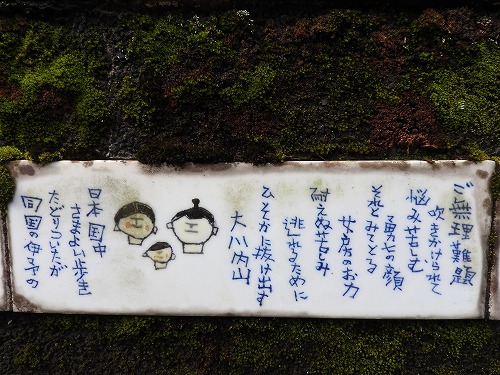 ご無理難題
吹きかけられて
悩み苦しむ
勇七の顔
それとみてとる
女房のお力
耐えぬ苦しみ
逃れるために
ひそかに抜け出す
大川内山
日本国中
さまよい歩き
たどりついたが
同国の